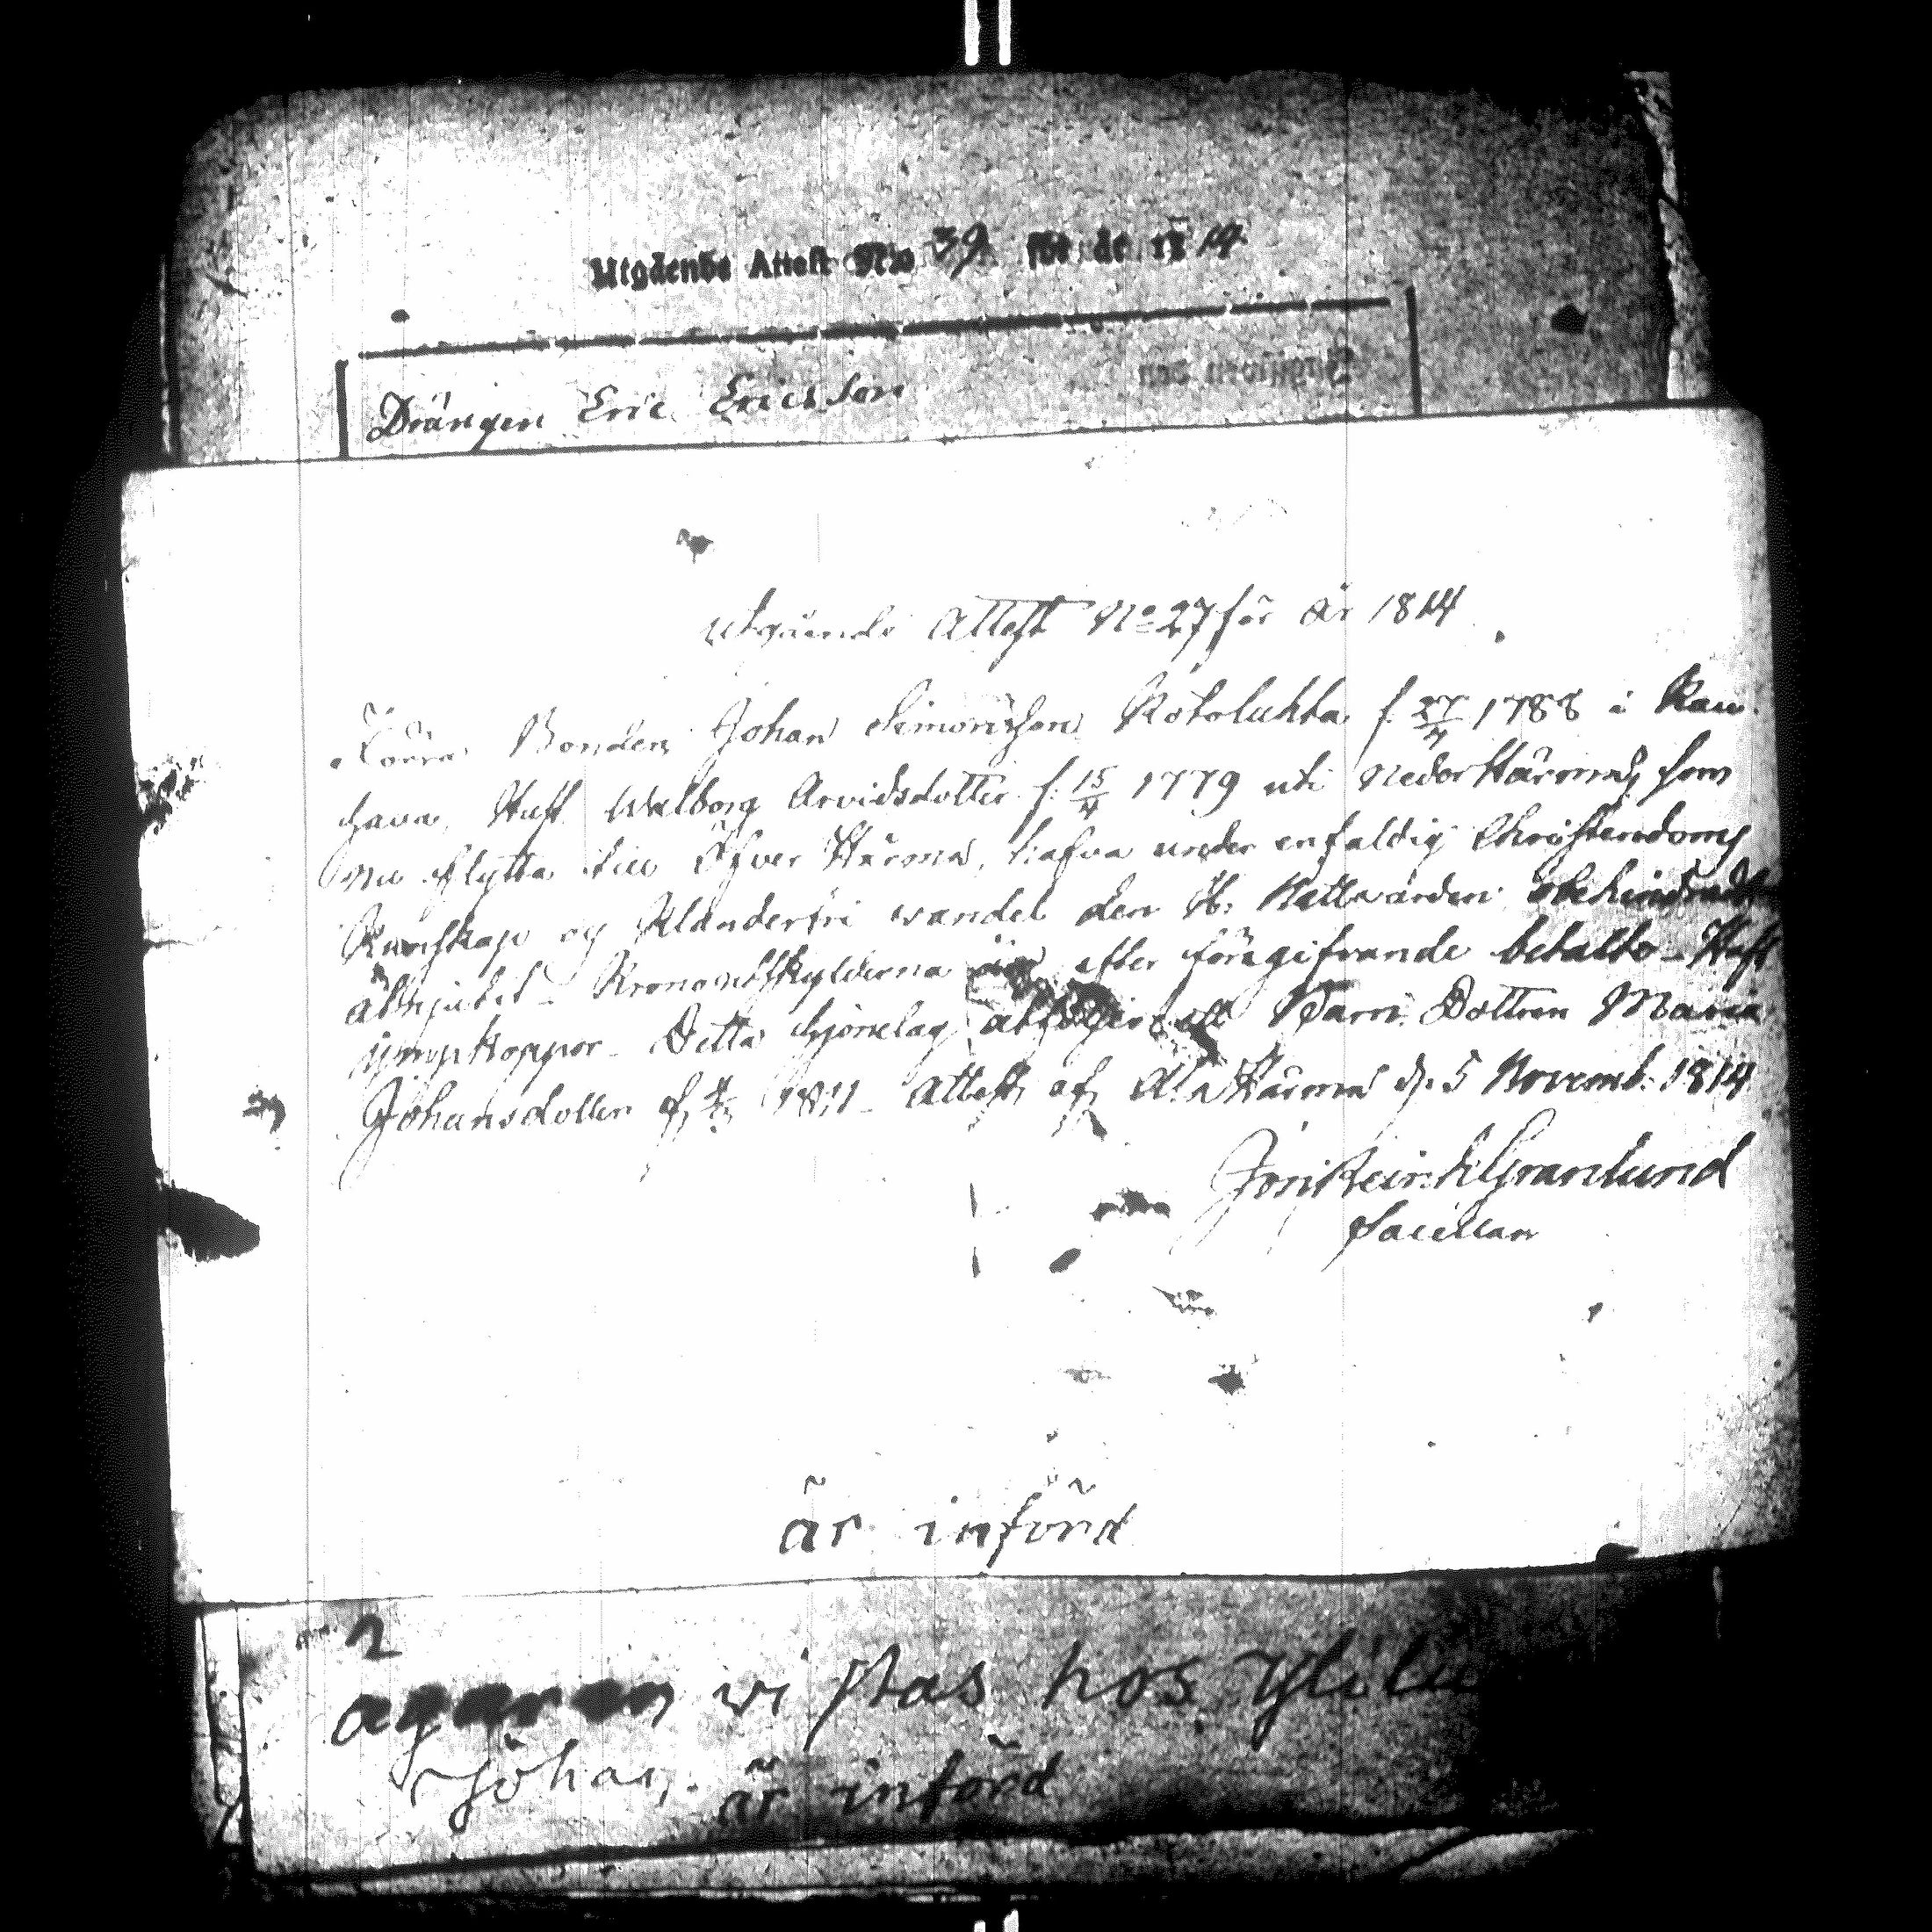 Utgående Attest No 39. för år 1814
Drängen Eric Ericsson
Utgående Attest No 27 för år 1814
Bonden Johan Simonsson f. 27/4 1788 i Kau-
hava, Hust. Walborg Arvidsdotter f. 15/4 1779 uti Neder Härmä, som
nu flytta till Öfver Härmä, hafva under enfaldig Christendoms
Kunskap og Klanderfri wandel den H: Nattvarden obehindradt
åtnjutit - Kronoutskylderna efter föregifvande betalte - Haft
ympkoppor - Detta hjonelag åtföljer ett Barn Dottren Maria
Johansdotter f. 1811 - Attest. af Härmä d. 5 Novemb. 1814
Granlund
Sacellan
är införd
ägaren vistas hos
Johan. är införd